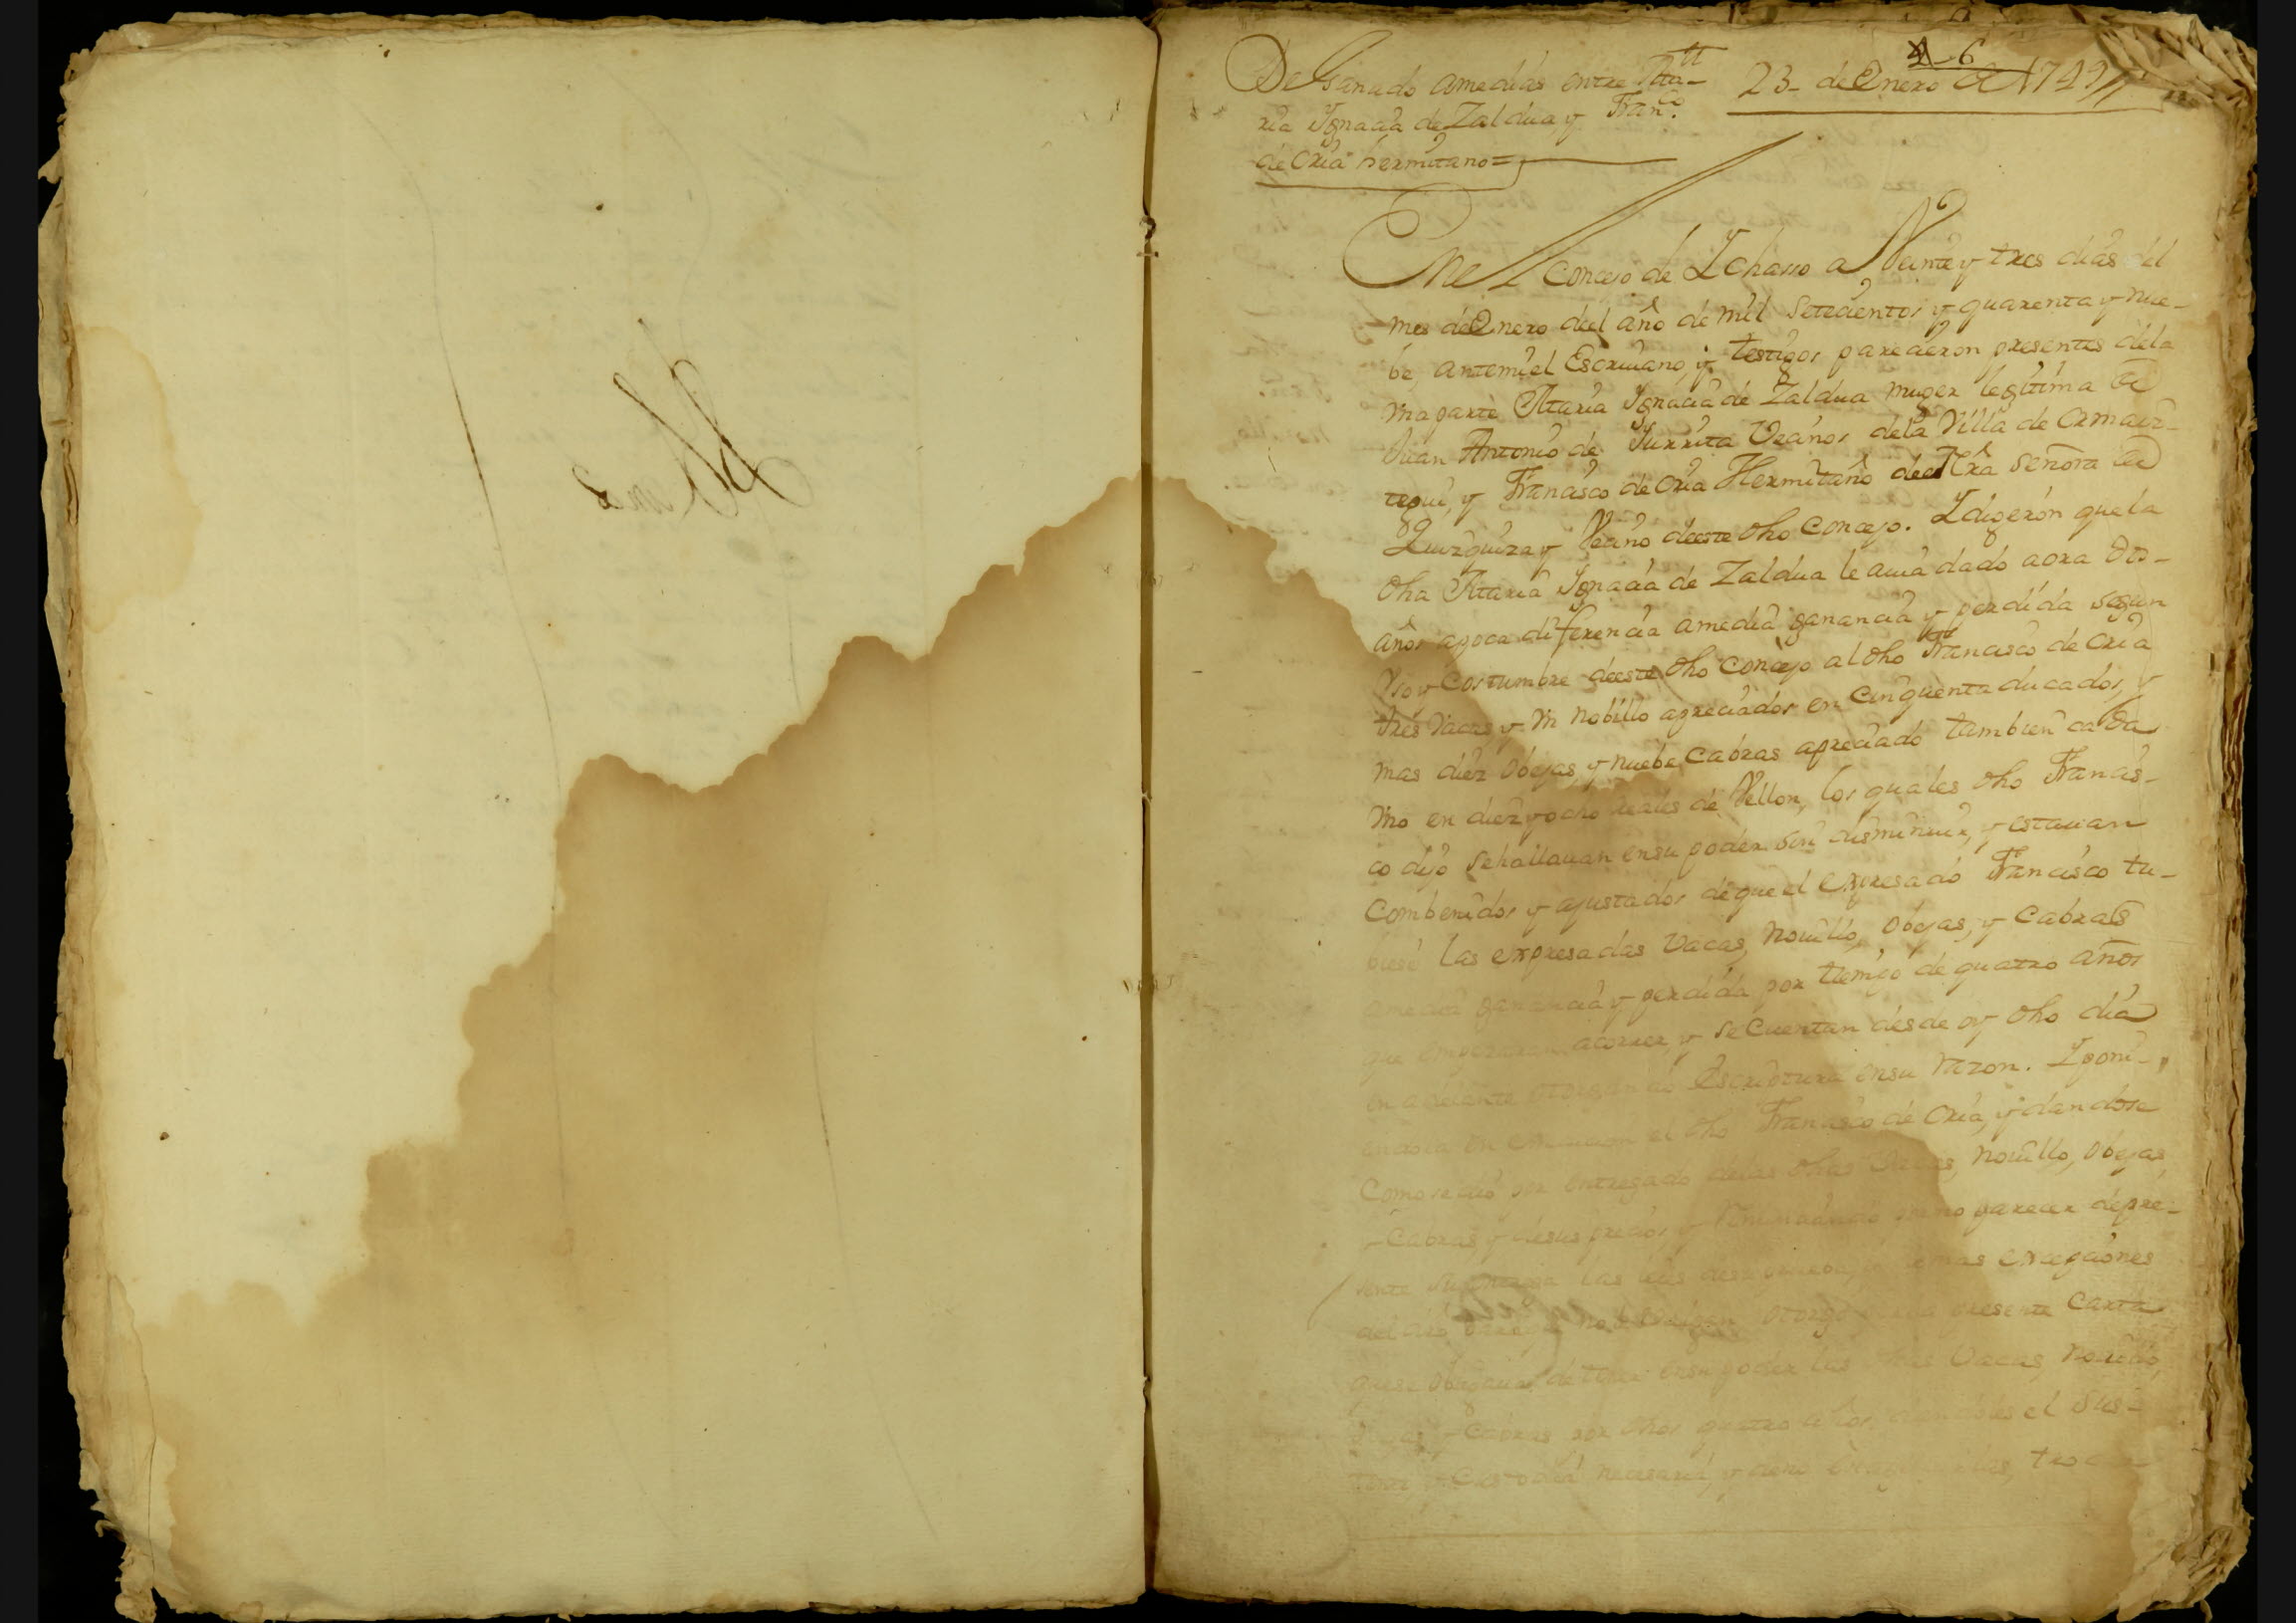 De Ganado amedias entre Ma-
ria Ignacia de Zaldua y Fran.co
de Oria hermitano=
23- de Enero de 1749
6
Enel Concejo de Ichaso a Veinte y tres dias del
mes de Enero deel año de mil setecientos y quarenta y nue-
be, antemi el Escriuano, y testigos parecieron presentes dela
vna parte Maria Ignacia de Zaldua muger legitima de
Juan Antonio de Iurrita Vecinos dela Villa de Ormaiz-
tegui, y Francisco de Oria Hermitaño de Nra señora de
Quizquiza y Vecino deeste dho Concejo. I digeron que la
dha Maria Ignacia de Zaldua le auia dado aora dos
años apoca diferencia amedia ganancia y perdida segun
Vso y Costumbre deeste dho Concejo al dho Francisco de Oria
tres Vacas y vn nobillo apreciados en Cinquenta ducados, y
mas diez obejas, y nuebe Cabras apreciado tambien cada
vno en diez y ocho reales de Vellon, los quales dho Francis-
co dijo se hallauan en su poder sin disminuir, y estauan
Combenidos y ajustados de que el expresado Francisco tu-
biese las expresadas Vacas, Nouillo, obejas, y Cabras
amedia ganancia y perdida por tiempo de quatro años
que empezaran acorrer y se Cuentan desde oy dho dia
en adelante otorgando Escriptura ensu razon. I poni-
endola en execucion el dho Francisco de Oria, y dandose
Como se dio por entregado delas dhas Vacas, nouillo, obejas
y Cabras y desus precios, y renunciando por no parecer depre-
sente su entrega las leies desu prueba, y demas excepciones
del caso otorgo presente Carta
que se obligaua de tener ensu poder las dhas Vacas, nouillo,
y Cabras por dhos quatro años, dandoles el sus-
tento, y Custodia necesaria, y